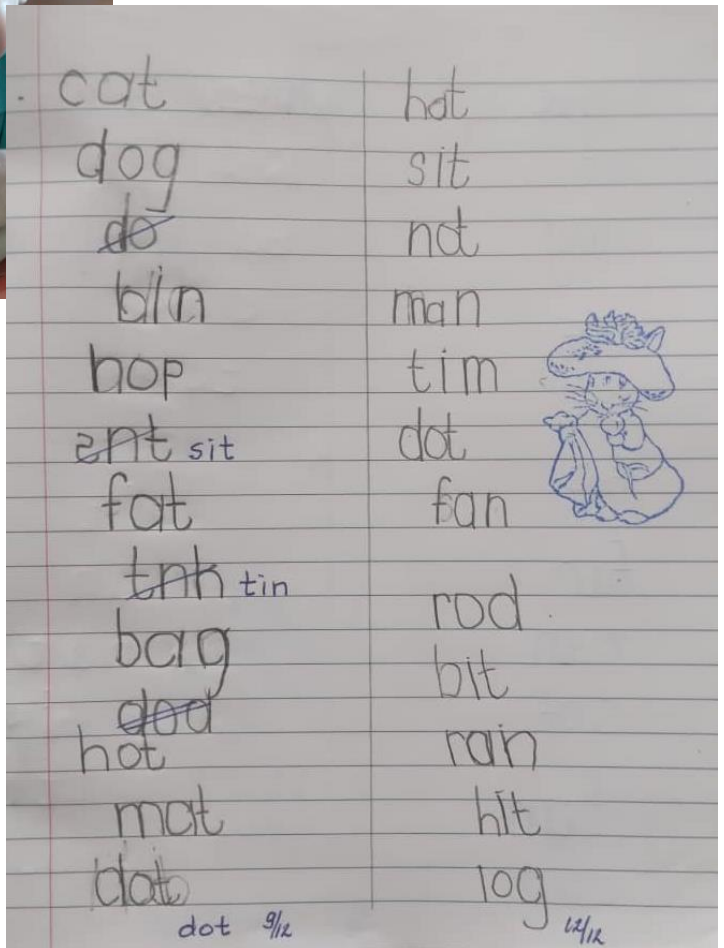 cat
dog
do
bin
hop
ent sit
fat
tnh tin
bag
dod
hot
mat
dat
dot 9/12
hot
sit
not
man
tim
dot
fan
rod
bit
ran
hit
log
12/12